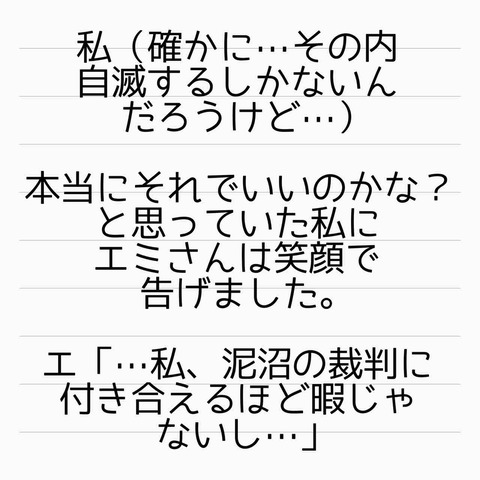 私（確かに…その内
自滅するしかないん
だろうけど…）
本当にそれでいいのかな？
と思っていた私に
エミさんは笑顔で
告げました。
エ「…私、泥沼の裁判に
付き合えるほど暇じゃ
ないし…」